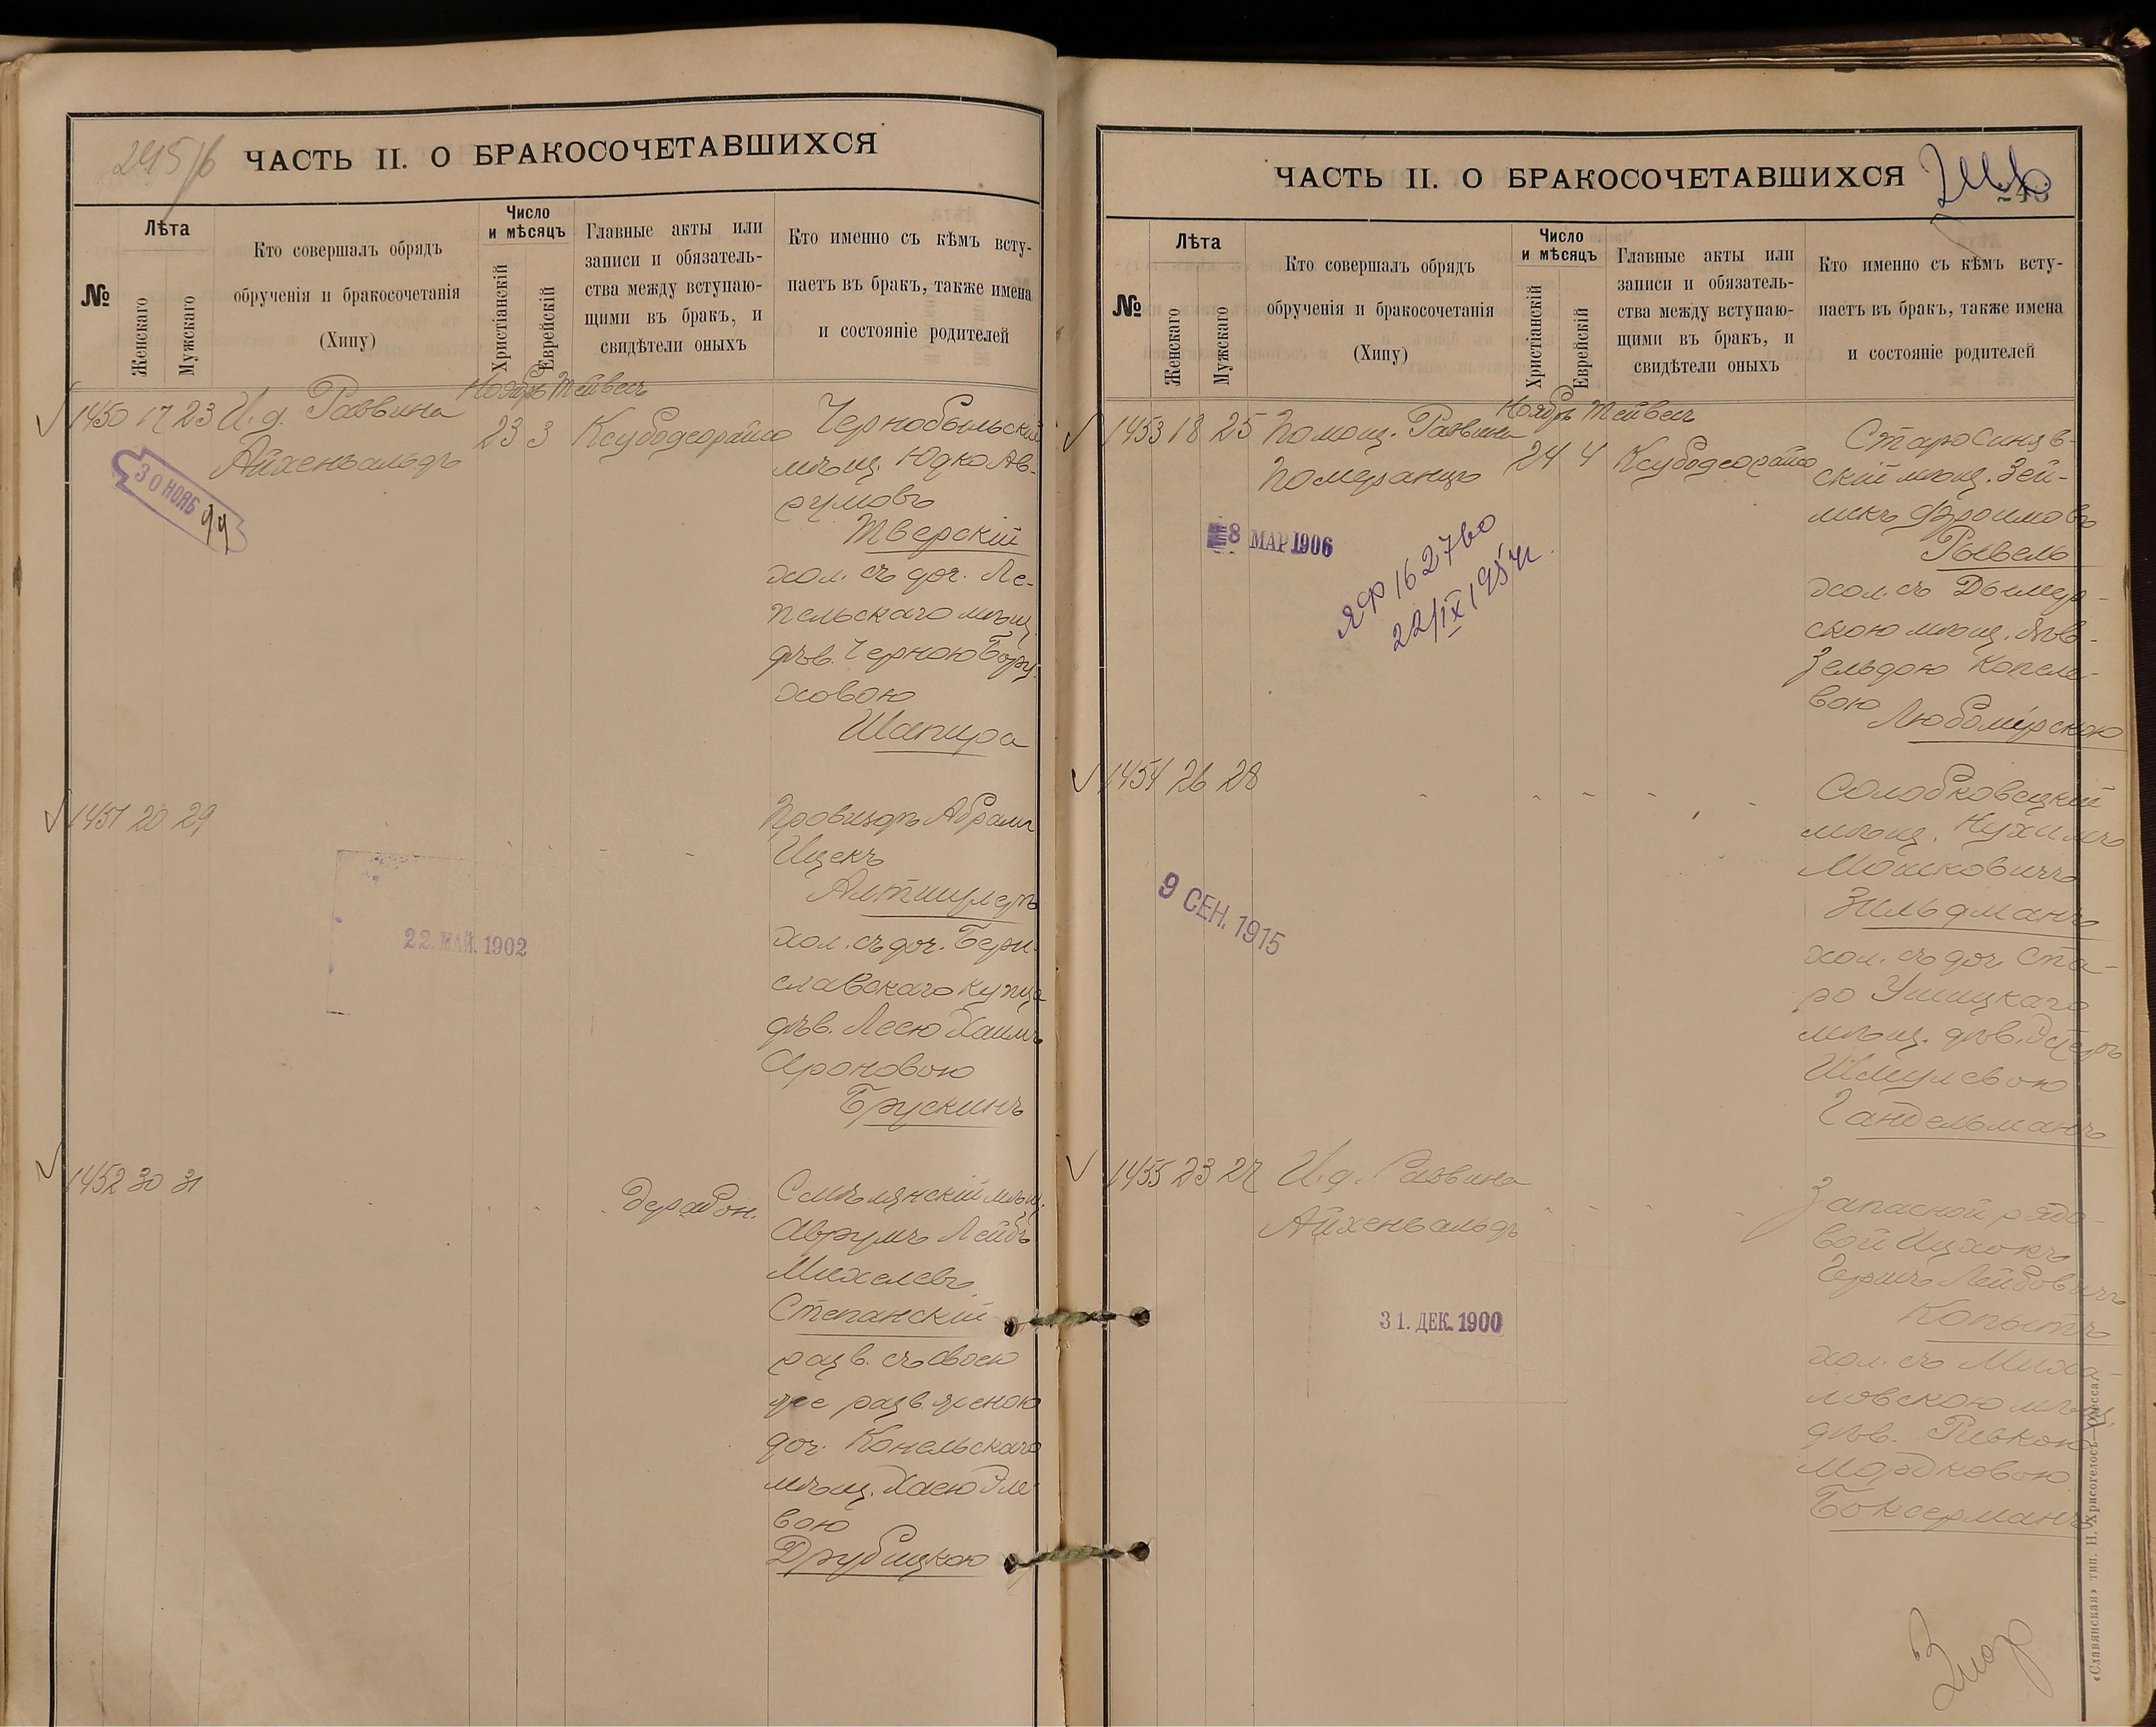 ЧАСТЬ II. О БРАКОСОЧЕТАВШИХСЯ
№
Лѣта
Женскаго
Мужскаго
Кто совершалъ обрядъ
обрученія и бракосочетанія
(Хипу)
Число
и мѣсяцъ
Христіанскій
Еврейскій
Главные акты или
записи и обязатель-
ства между вступаю-
щими въ бракъ, и
свидѣтели оныхъ
Кто именно съ кѣмъ всту-
паетъ въ бракъ, также имена
и состояніе родителей
Ноябрь Тейвесъ
1450 17 23 И. д. Раввина
Айхенвальдъ
23 3
30 НОЯБ 99
Чернобыльскій
мѣщ. Юдко Ав-
румовъ
Тверскій
хол. съ доч. Ле-
пельскаго мѣщ.
дѣв. Черною Бору-
ховою
Шапира
1451 20 29
22. МАЙ. 1902
Провизоръ Абрамъ
Ицекъ
Алтшулеръ
хол. съ доч. Бери-
славскаго купца
дѣв. Леею Хаимъ
Ароновою
Брускинъ
1452 30 31
Смѣлянскій мѣщ.
Аврумъ Лейбъ
Михелевъ
Степанскій
разв. съ своею
же разв. женою
доч. Конельскаго
мѣщ. Хаею Эле-
вою
Друбицкою
ЧАСТЬ II. О БРАКОСОЧЕТАВШИХСЯ
№
Лѣта
Женскаго
Мужскаго
Кто совершалъ обрядъ
обрученія и бракосочетанія
(Хипу)
Число
и мѣсяцъ
Христіанскій
Еврейскій
Главные акты или
записи и обязатель-
ства между вступаю-
щими въ бракъ, и
свидѣтели оныхъ
Кто именно съ кѣмъ всту-
паетъ въ бракъ, также имена
и состояніе родителей
Ноябрь Тейвесъ
1453 18 25 Помощ. Раввина
Померанцъ
24 4
8 МАР 1906
ЯФ 162760
22/IX 1954
Старосиняв-
скій мѣщ. Зей-
ликъ Фроимовъ
хол. съ Дымер-
скою мѣщ. дѣв.
Зельдою Копеле-
вою Любомірскою
1454 26 28
9 СЕН. 1915
Солобковецкій
мѣщ. Нухимъ
Мошковичъ
Зильдманъ
хол. съ доч. Ста-
ро Ушицкаго
мѣщ. дѣв. Эстеръ
Шмулевою
Гандельманъ
1455 23 27 И. д. Раввина
Айхенвальдъ
31. ДЕК. 1900
Запасной рядо-
вой Ицхокъ
Гершъ Лейбовичъ
Копытъ
хол. съ Миха-
ловскою мѣщ.
дѣв. Ривкою
Мордковою
Боксерманъ
«Славянская» тип. Н. Хрисогелосъ—Одесса.